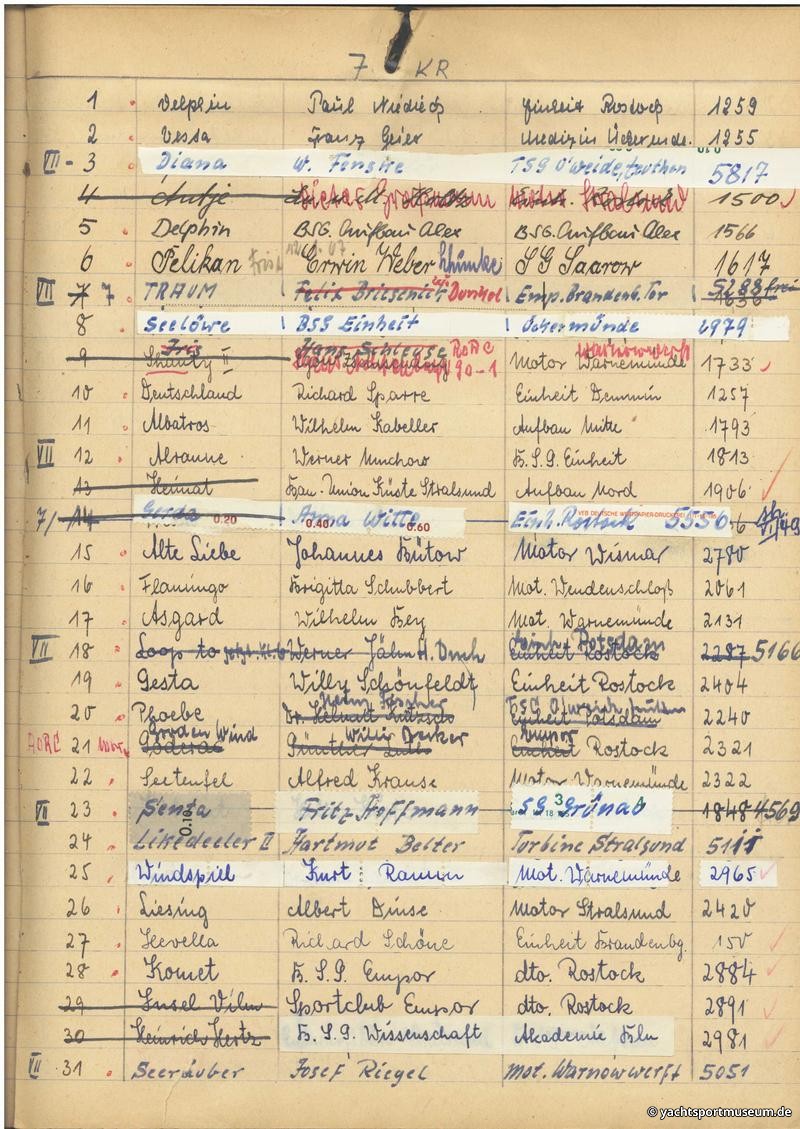 7 KR
1 Delphin Paul Niedieck Einheit Rostock 1259
2 Vessa Franz Geier Medizin Ückermde. 1255
VII - 3 Diana W. Fenske TSG O'weide, treptow 5817
4 Antje 1500
5 Delphin BSG. Aufbau Alex BSG. Aufbau Alex 1566
6 Pelikan Erwin Weber SG Saarow 1617
VII 7 7 TRAUM Felix Dunkel Emp. Brandenb. Tor 5288 frei
8 Seelöwe BSG Einheit Ückermünde 2979
9 Iris II Hans RORC 90-1 Motor Warnemünde Warnowwerft 1733
10 Deutschland Richard Sparre Einheit Demmin 1257
11 Albatros Wilhelm Kabeller Aufbau Mitte 1793
VII 12 Alraune Werner Munchow B.S.G. Einheit 1813
13 Heimat Bau-Union Küste Stralsund Aufbau Nord 1906
7/ 14 Gerda 0.20 Anna Witte 0.40 0.60 Einh. Rostock 5556
15 Alte Liebe Johannes Bütow Motor Wismar 2780
16 Flamingo Brigitta Schubbert Mot. Wendenschloß 2061
17 Asgard Wilhelm Hey Mot. Warnemünde 2131
VII 18 Loop to Werner Jähn Potsdam Einheit Rostock 2287 5166
19 Gesta Willy Schönfeldt Einheit Rostock 2404
20 Phoebe Heinz Fischer Dr. Helmuth Einheit Potsdam 2240
RORC 21 Groden Wind Willi Decker Günther Empor Einheit Rostock 2321
22 Seeteufel Alfred Krause Motor Warnemünde 2322
VII 23 Senta 0.10 Fritz Hoffmann SG Grünau 1848 4569
24 Likedeeler II Hartmut Belter Turbine Stralsund 5111
25 Windspiel Kurt Ramin Mot. Warnemünde 2965
26 Liesing Albert Dinse Motor Stralsund 2420
27 Hevella Richard Schöne Einheit Brandenbg. 150
28 Komet B.S.G. Empor dto. Rostock 2884
29 Insel Vilm Sportclub Empor dto. Rostock 2891
30 Heinrich Hertz B.S.G. Wissenschaft Akademie Bln 2981
VII 31 Seeräuber Josef Riegel Mot. Warnowwerft 5051
© yachtsportmuseum.de